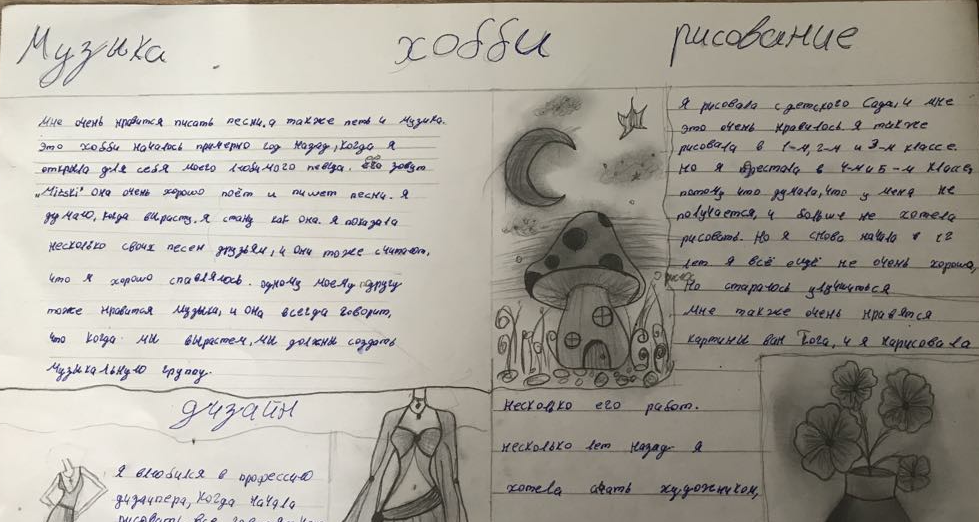 Музыка
хобби
рисование
Мне очень нравится писать песни, а также петь и музыка.
Это хобби началось примерно год назад, когда я
открыла для себя моего любимого певца. его зовут
"Mitski" она очень хорошо поёт и пишет песни. Я
думаю, когда вырасту, я стану как она. Я показала
несколько своих песен друзьям, и они тоже считают,
что я хорошо справляюсь. одному моему другу
тоже нравится музыка, и она всегда говорит,
что когда мы вырастем, мы должны создать
музыкальную группу.
Я рисовала с детского сада, и мне
это очень нравилось я также
рисовала в 1-м, 2-м и 3-м классе.
Но я перестала в 4-м и 5-м классе,
потому что думала, что у меня не
получается, и больше не хотела
рисовать. Но я снова начала в 12
лет я всё ещё не очень хороша,
но стараюсь улучшиться
мне также очень нравятся
картины ван Гога, и я нарисовала
несколько его работ.
несколько лет назад я
хотела стать художником,
дизайн
Я влюбился в профессию
дизайнера, когда начала
рисовать все